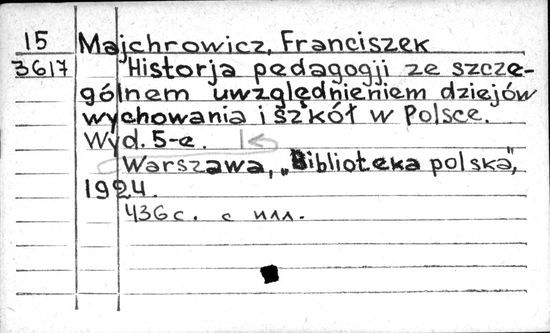 15 Majchrowicz, Franciszek
3617 Historja pedagogji ze szcze-
gólnem uwzględnieniem dziejów
wychowania i szkół w Polsce.
Wyd. 5-e.
Warszawa, „Biblioteka polska",
1924.
436 с. с илл.